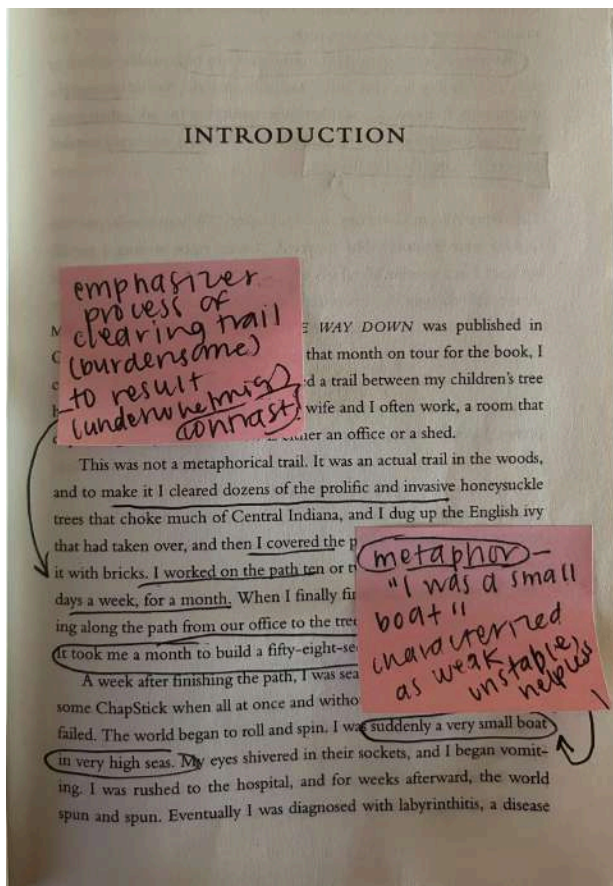 INTRODUCTION
emphasizes
process of
clearing trail
(burdensome)
to result
(underwhelming)
contrast
WAY DOWN was published in
that month on tour for the book, I
a trail between my children's tree
wife and I often work, a room that
an office or a shed.
This was not a metaphorical trail. It was an actual trail in the woods,
and to make it I cleared dozens of the prolific and invasive honeysuckle
trees that choke much of Central Indiana, and I dug up the English ivy
that had taken over, and then I covered the
it with bricks. I worked on the path ten or
days a week, for a month. When I finally
ing along the path from our office to the
It took me a month to build a
A week after finishing the path, I was
some ChapStick when all at once and
failed. The world began to roll and spin. I was suddenly a very small boat
in very high seas. My eyes shivered in their sockets, and I began vomit-
ing. I was rushed to the hospital, and for weeks afterward, the world
spun and spun. Eventually I was diagnosed with labyrinthitis, a disease
metaphor –
"I was a small
boat"
characterized
as weak,
unstable,
helpless